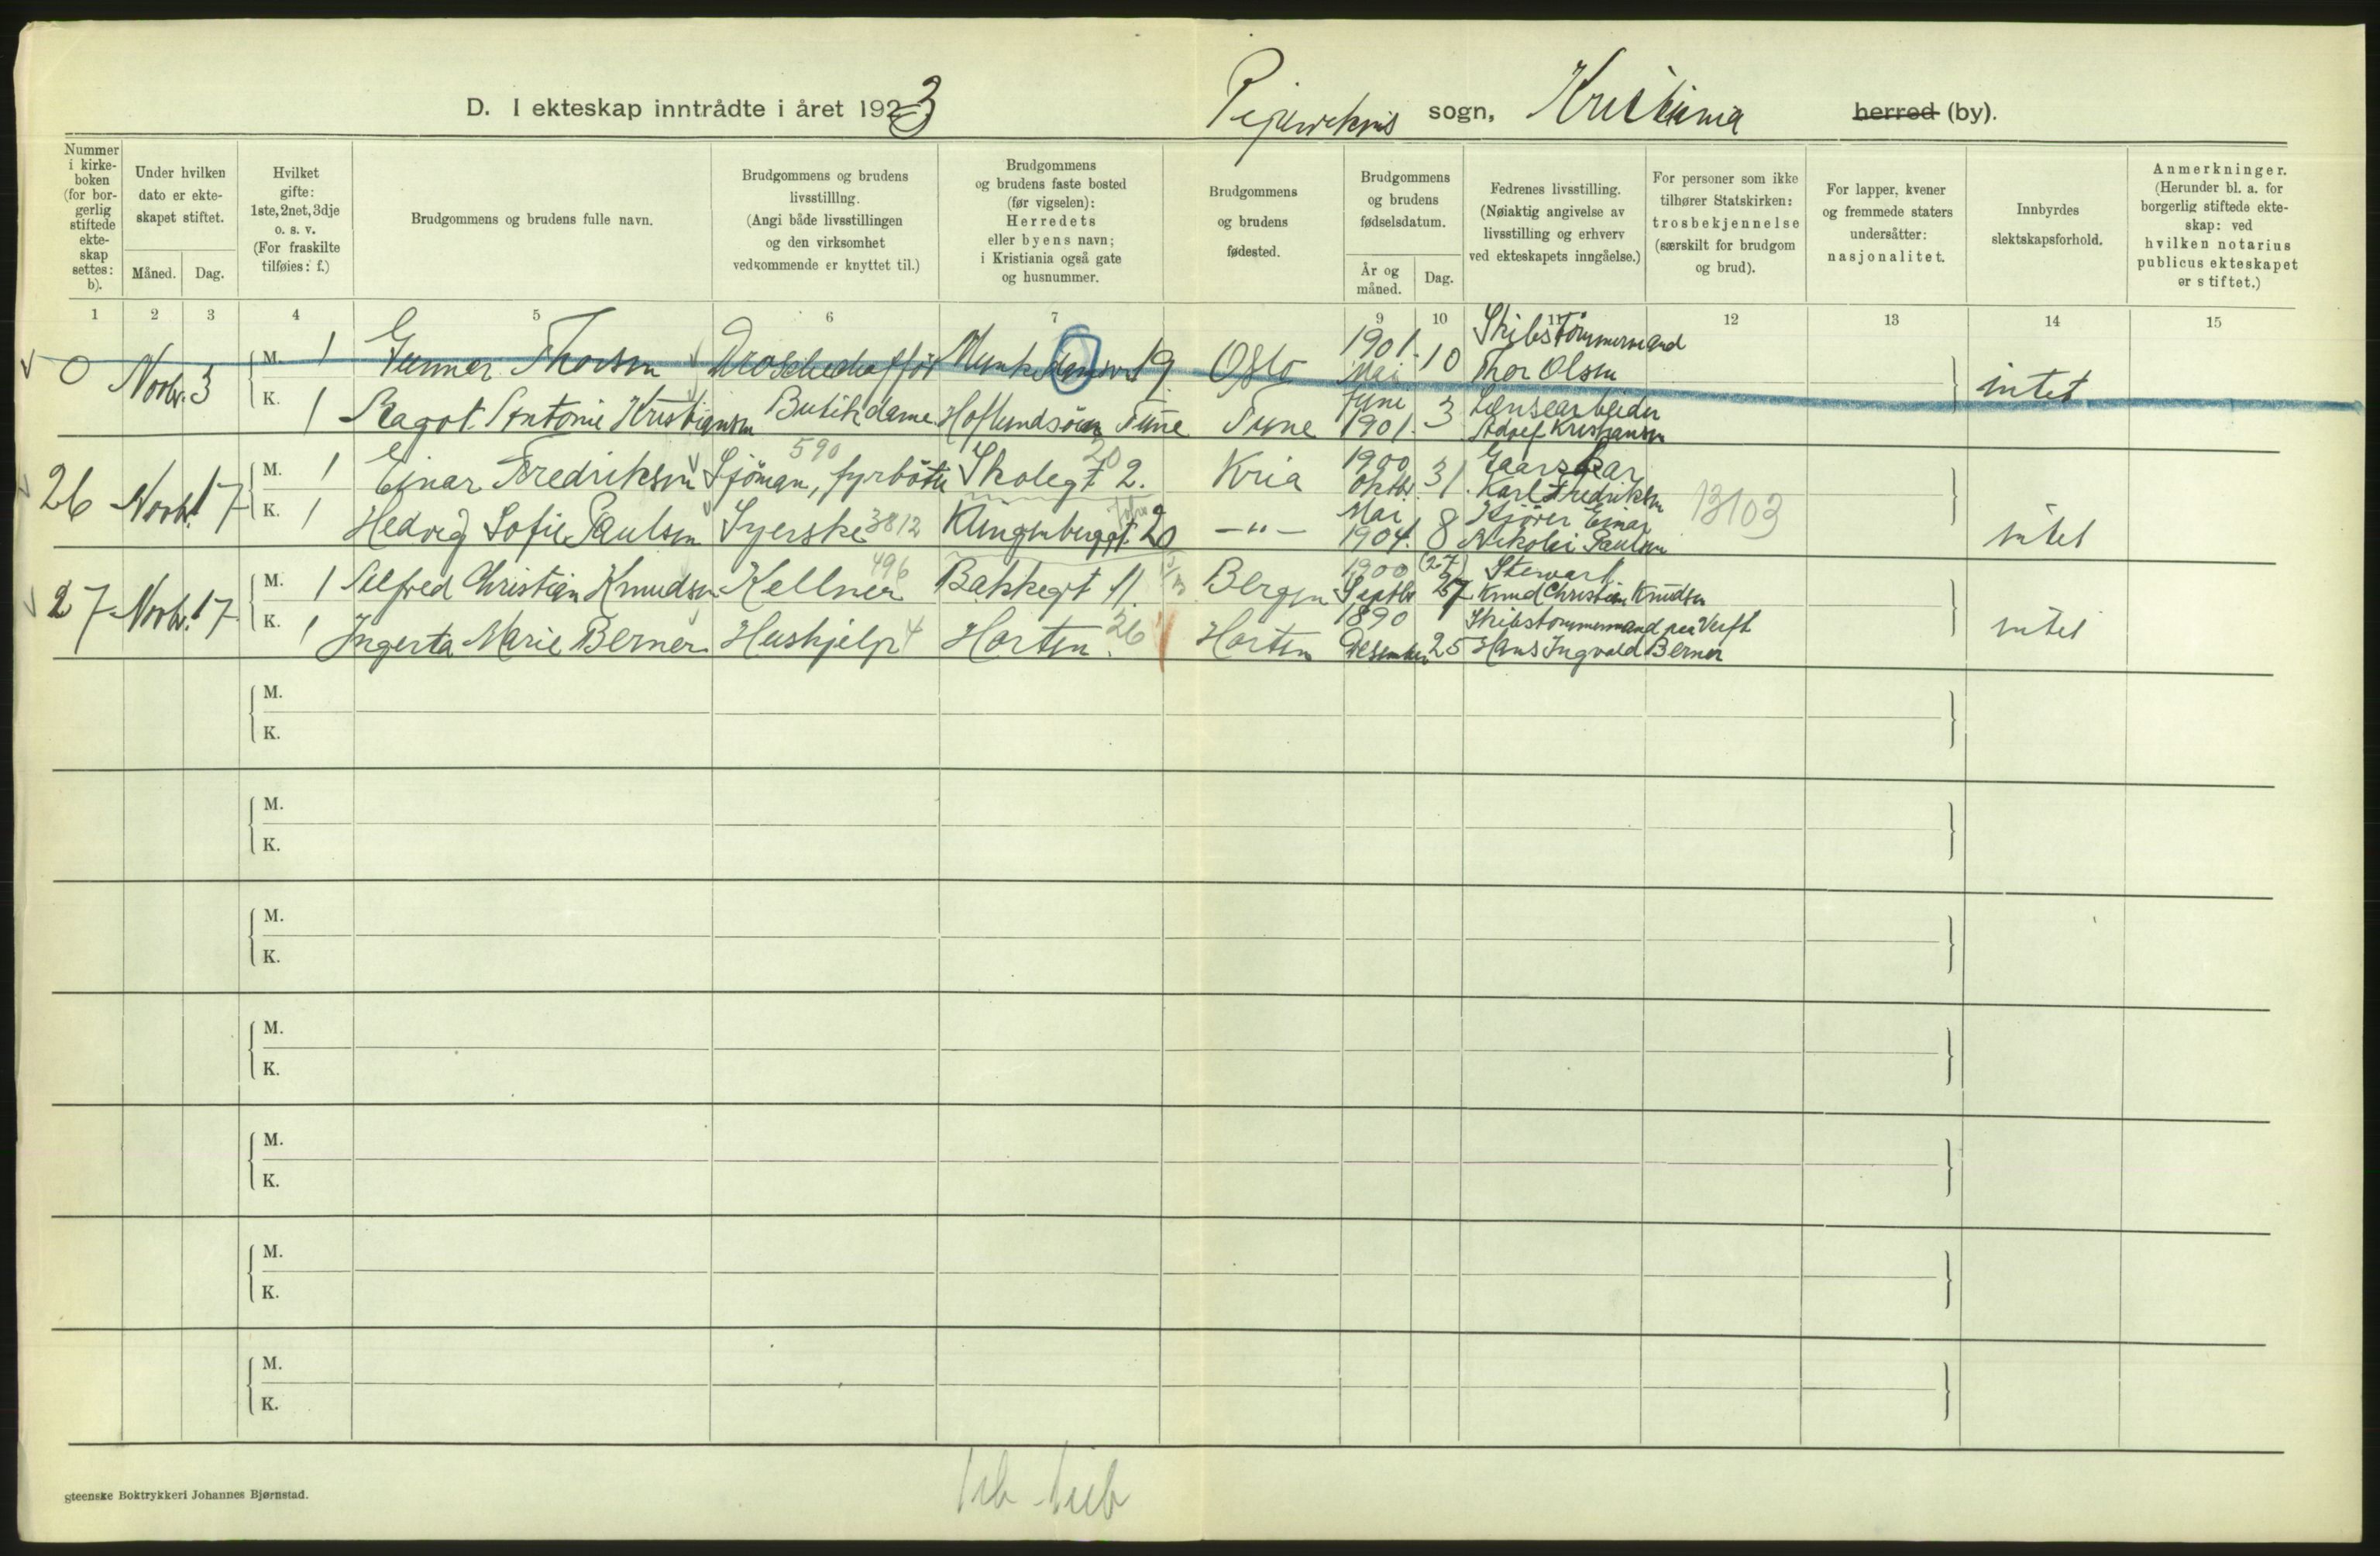 D. I ekteskap inntrådte i året 1923
sogn, Kristiania herred (by).
Nummer i kirke- boken (for bor- gerlig stiftede ekte- skap settes: b).
Under hvilken dato er ekte- skapet stiftet.
Måned. Dag.
Hvilket gifte: 1ste, 2net, 3dje o. s. v. (For fraskilte tilføies: f.)
Brudgommens og brudens fulle navn.
Brudgommens og brudens livsstilllng. (Angi både livsstillingen og den virksomhet vedkommende er knyttet til.)
Brudgommens og brudens faste bosted (før vigselen): Herredets eller byens navn; i Kristiania også gate og husnummer.
Brudgommens og brudens fødested.
Brudgommens og brudens fødselsdatum.
År og måned. Dag.
Fedrenes livsstilling. (Nøiaktig angivelse av livsstilling og erhverv ved ekteskapets inngåelse.)
For personer som ikke tilhører Statskirken: trosbekjennelse (særskilt for brudgom og brud).
For lapper, kvener og fremmede staters undersåtter: nasjonalitet.
Innbyrdes slektskapsforhold.
Anmerkninger. (Herunder bl. a. for borgerlig stiftede ekte- skap: ved hvilken notarius publicus ekteskapet er stiftet.)
1 2 3 4 5 6 7 9 10 11 12 13 14 15
0 Novbr. 3 M. 1 Gunnar Thorsen Munkedamsv. 19 Oslo 1901. Mai 10 Skibstömmermand Thor Olsen intet
K. 1 Ragot Antonie Kristiansen Butikdame Tune Tune June 1901. 3 Lensearbeider Adolf Kristiansen
26 Novbr. 17 M. 1 Einar Fredriksen Sjöman, fyrböter 590 Skolegt 2. 20 Kria 1900 Oktbr. 31. Karl Fredriksen 13103 intet
K. 1 Hedvig Sofie Paulsen Syerske 3812 Klingenberggt. 20 -"- Mai 1904. 8 Kjörer Einar Nikolai Paulsen
27 Novbr. 17 M. 1 Alfred Christian Knudsen Kellner 496 Bakkegt 11. Bergen 1900 Septbr (27) 27 Stewart Knud Christian Knudsen intet
K. 1 Ingerta Marie Berner Hushjelp 4 Horten. 26 Horten 1890 Desember 25 Skibstommermand paa Verft Hans Ingvald Berner
M.
K.
M.
K.
M.
K.
M.
K.
M.
K.
M.
K.
M.
K.
gteenske Boktrykkeri Johannes Bjørnstad.